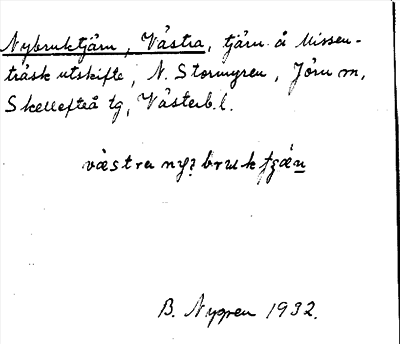 Nybruktjärn, Västra, tjärn å Missen-
träsk utskifte, N. Stormyren, Jörn sn,
Skellefteå tg, Västerb. l.
västra
B. Nygren 1932.